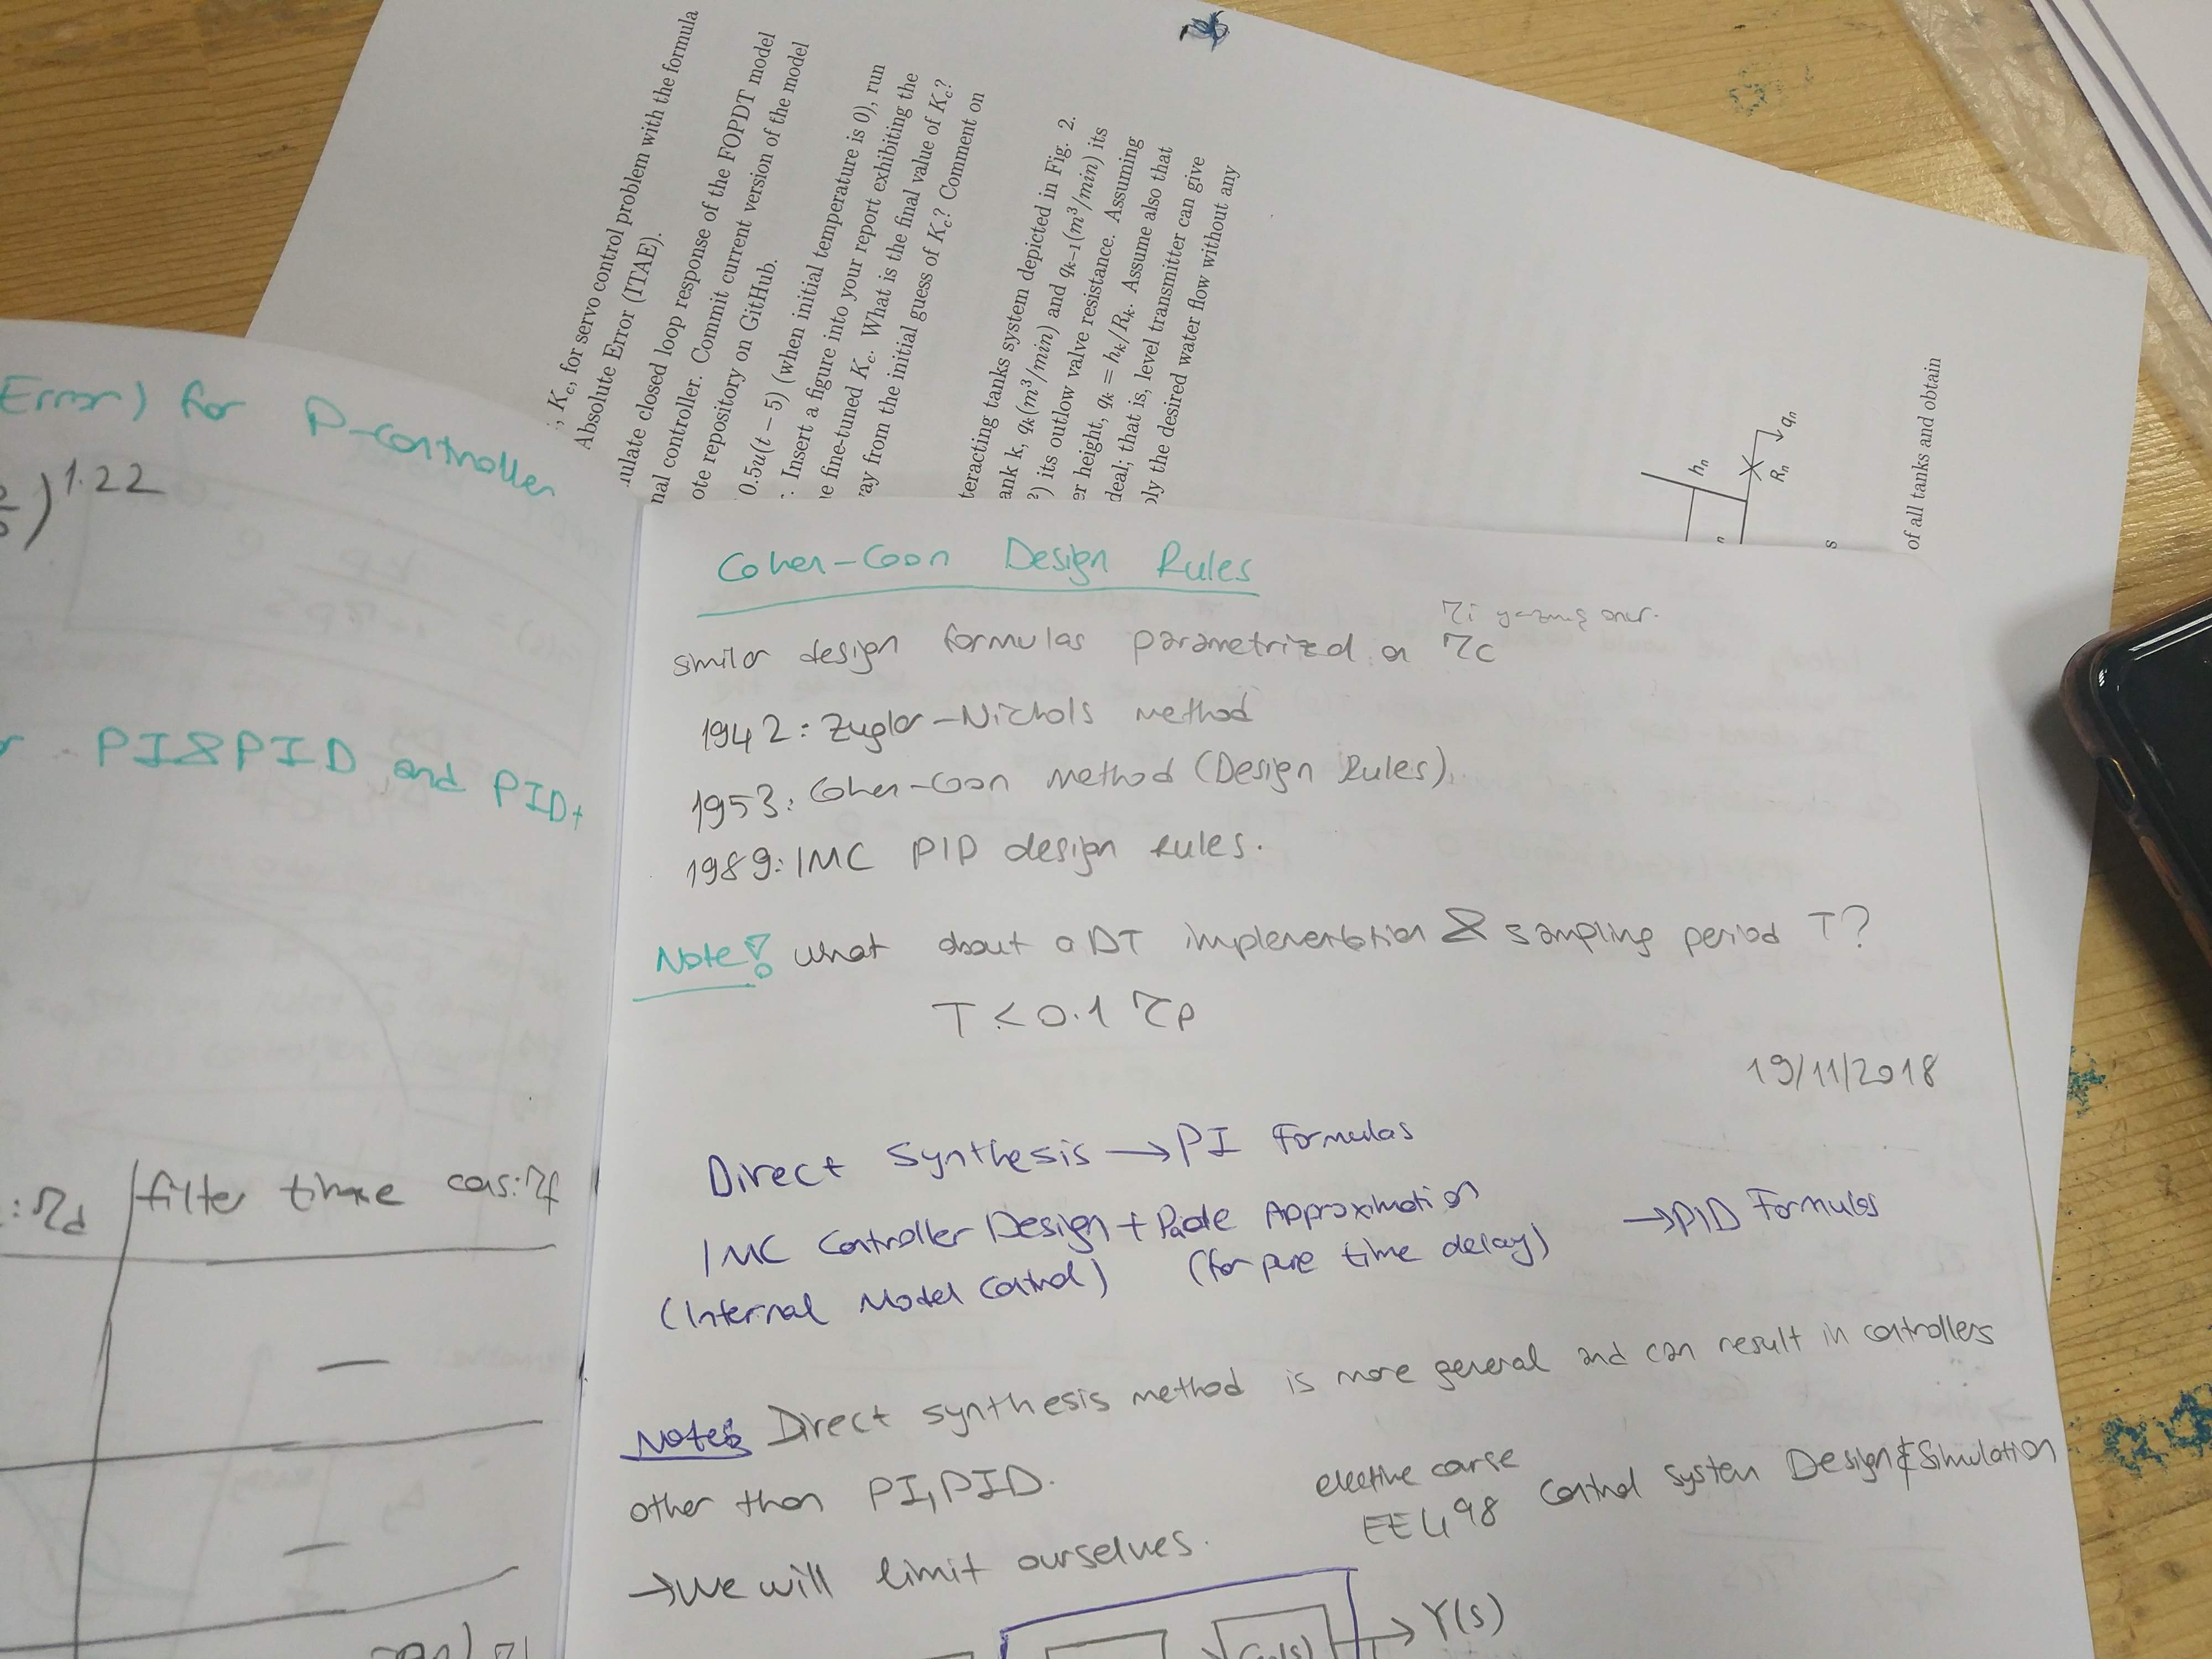 , K_c, for servo control problem with the formula
Absolute Error (ITAE).
nulate closed loop response of the FOPDT model
nal controller. Commit current version of the model
ote repository on GitHub.
0.5u(t − 5) (when initial temperature is 0), run
: Insert a figure into your report exhibiting the
e fine-tuned K_c. What is the final value of K_c?
ray from the initial guess of K_c? Comment on
teracting tanks system depicted in Fig. 2.
ank k, q_k(m³/min) and q_{k−1}(m³/min) its
²) its outlow valve resistance. Assuming
er height, q_k = h_k/R_k. Assume also that
deal; that is, level transmitter can give
ply the desired water flow without any
h_n
R_n
q_n
s
of all tanks and obtain
Error) for P-controller
)^1.22
r PI&PID and PID+
: τd filter time cons: τf
—
—
Cohen-Coon Design Rules
similar design formulas parametrized on τc
τi yazmış onur.
1942: Zieglor-Nichols method
1953: Cohen-Coon method (Design Rules).
1989: IMC PID design rules.
Note! what about a DT implementation & sampling period T?
T < 0.1 τp
19/11/2018
Direct Synthesis → PI Formulas
IMC Controller Design + Pade Approximation → PID Formulas
(Internal Model Control) (for pure time delay)
Note: Direct synthesis method is more general and can result in controllers
other than PI, PID.
elective course
EE498 Control System Design & Simulation
→ We will limit ourselves.
→ Y(s)